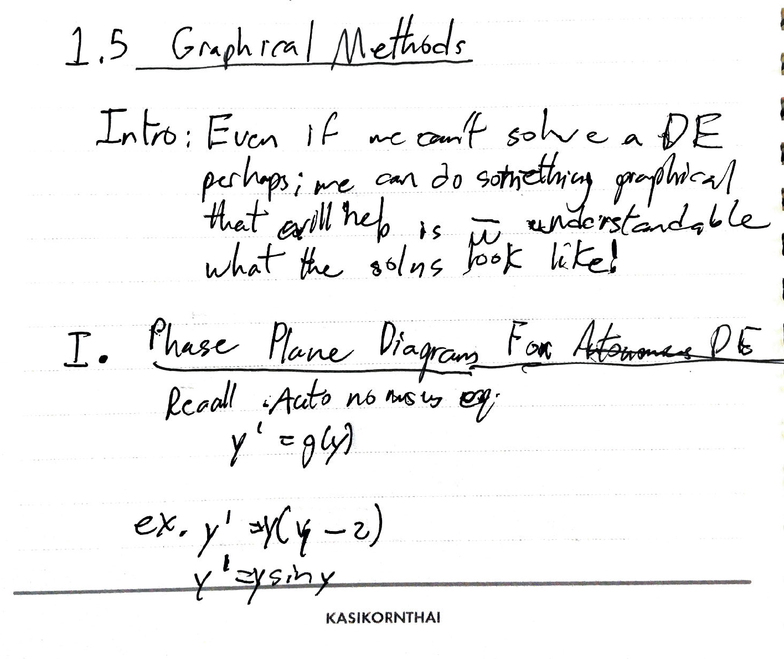 1.5 Graphical Methods
Intro: Even if we can't solve a DE
perhaps; we can do something graphical
that will help is w̅ understandable
what the solns look like!
I. Phase Plane Diagrams For Atonomous DE
Recall: Autonomous eq.
y' = g(y)
ex. y' = y(y - 2)
y' = y sin y
KASIKORNTHAI